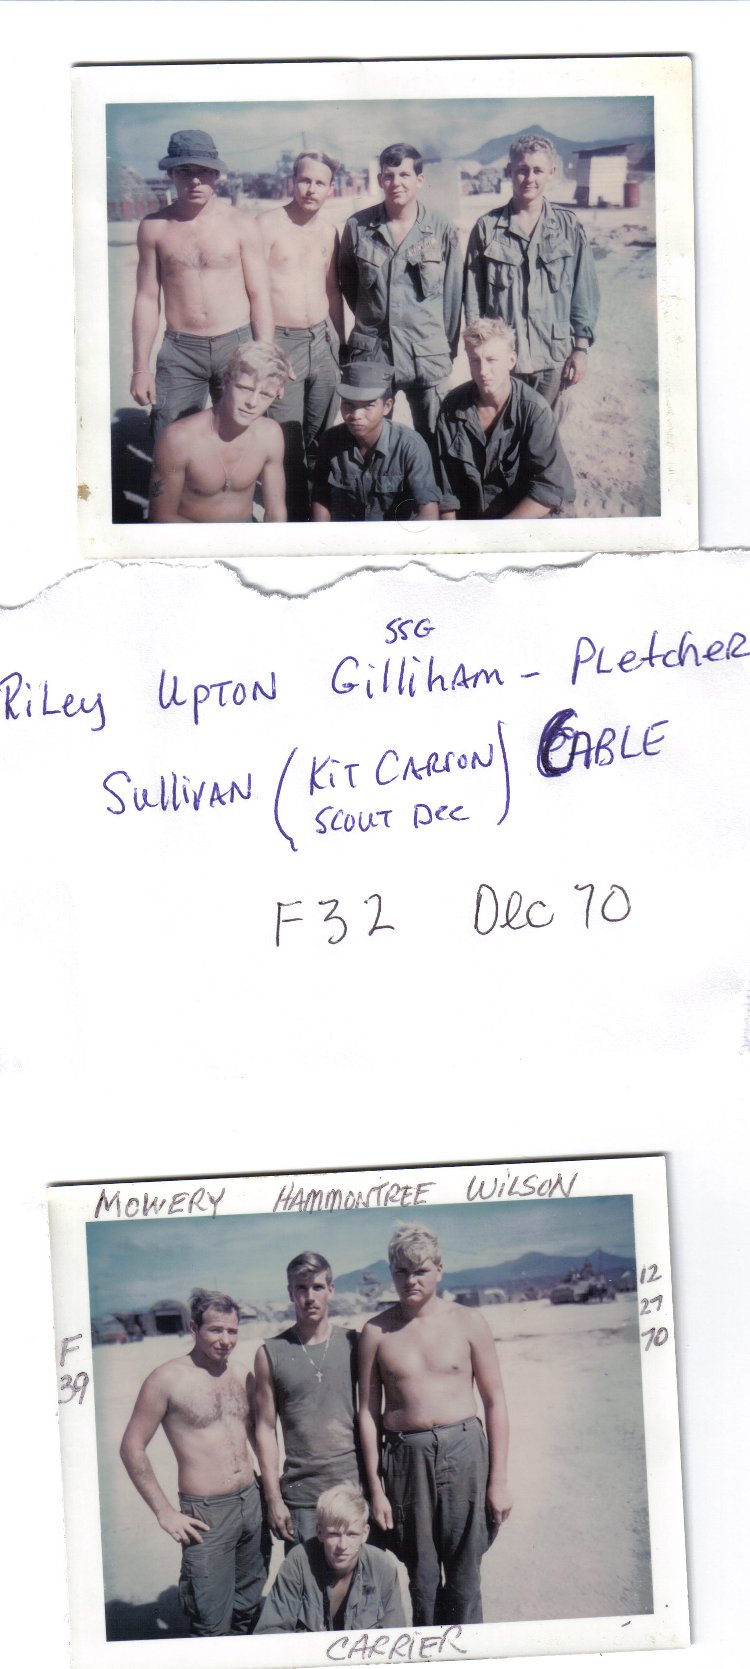 SSG
Riley Upton Gilliham - Pletcher
Sullivan (Kit Carson Scout Dec) CABLE
F32 Dec 70
MOWERY HAMMONTREE WILSON
F
39
12
27
70
CARRIER